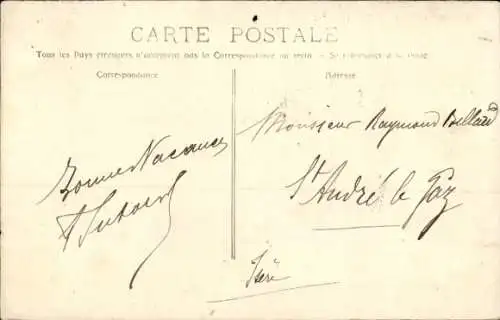 CARTE POSTALE
Tous les Pays étrangers n'acceptent pas la Correspondance au recto. - Se renseigner à la Poste
Correspondance
Adresse
Bonnes Vacances
Monsieur Raymond Billard
St André le Gaz
Isère